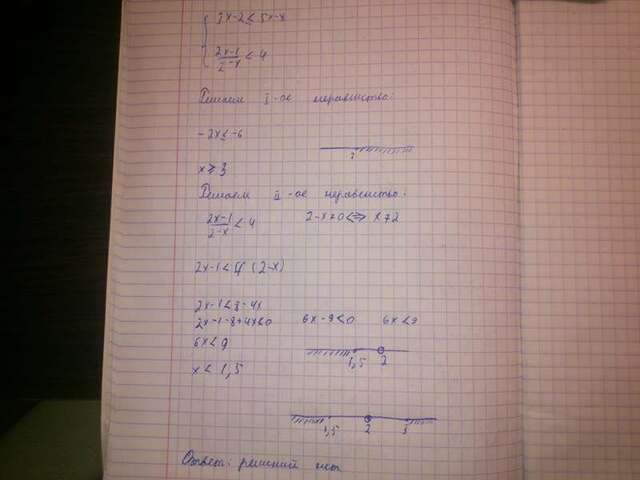 3x-2≤5x-8
2x-1/2-x<4
Решаем I-ое неравенство:
-2x≤-6
3
x≥3
Решаем II-ое неравенство.
2x-1/2-x<4 2-x≠0<=> x≠2
2x-1<4(2-x)
2x-1<8-4x
2x-1-8+4x<0 6x-9<0 6x<9
6x<9
1,5 2
x<1,5
1,5 2 3
Ответ: решений нет